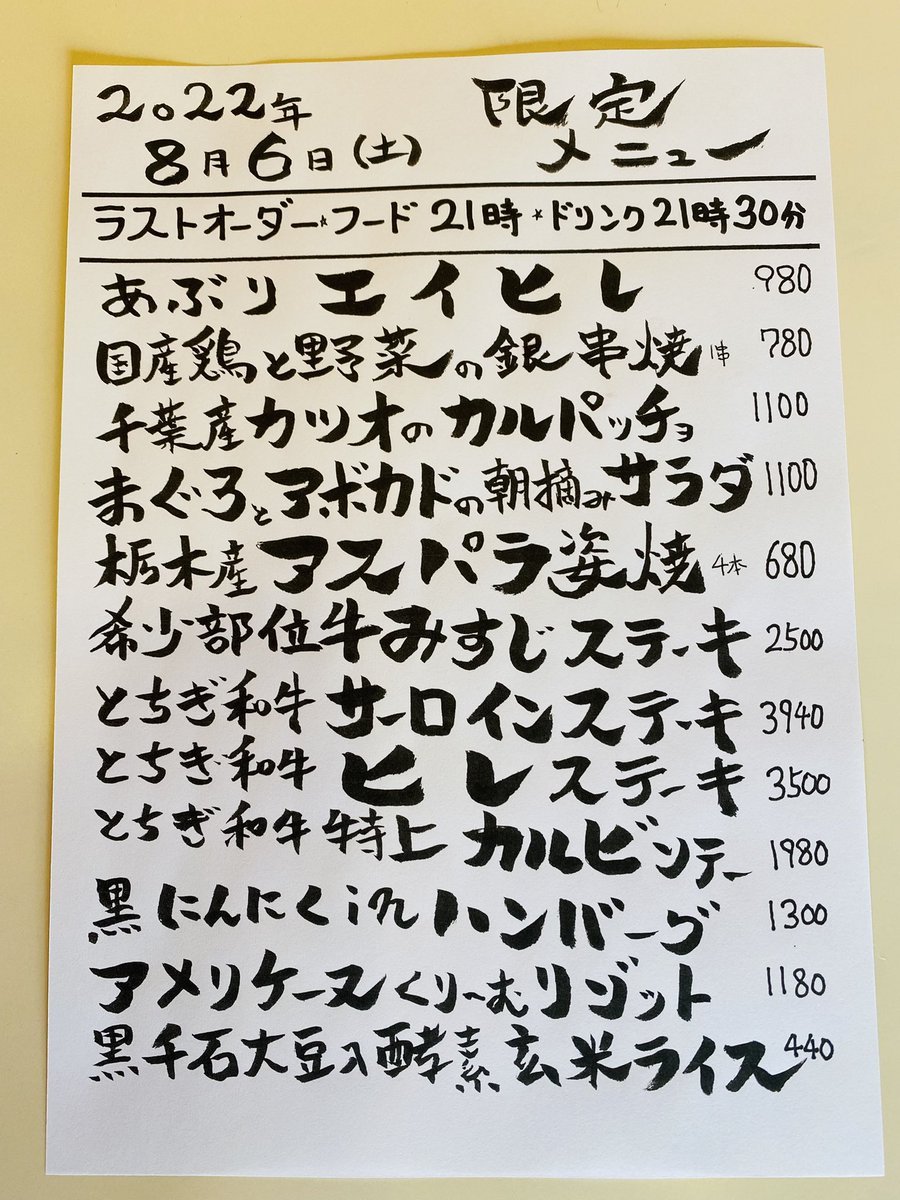 2022年 限定
8月6日(土) メニュー
ラストオーダー*フード 21時 * ドリンク21時30分
あぶり エイヒレ 980
国産鶏と野菜の銀串焼 1串 780
千葉産カツオのカルパッチョ 1100
まぐろとアボカドの朝摘みサラダ 1100
栃木産アスパラ姿焼 4本 680
希少部位牛みすじステーキ 2500
とちぎ和牛 サーロインステーキ 3940
とちぎ和牛 ヒレステーキ 3500
とちぎ和牛特上 カルビソテー 1980
黒にんにくinハンバーグ 1300
アメリケーヌくりーむリゾット 1180
黒千石大豆入酵素玄米ライス 440